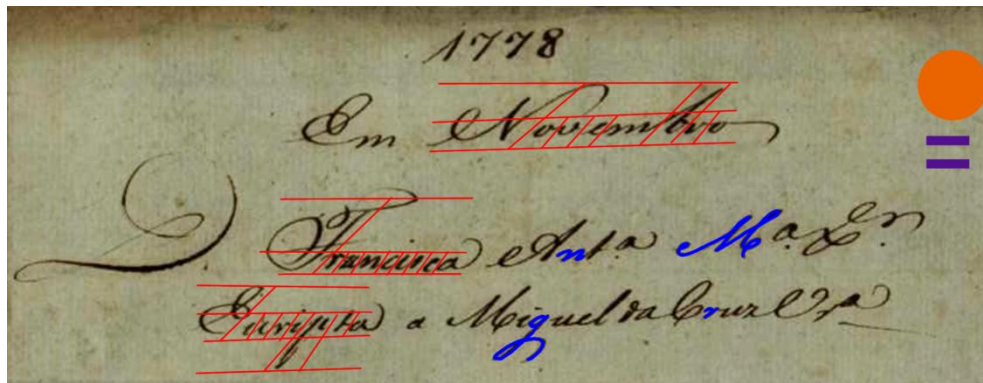 1778
Em Novembro
D. Francisca Ant.a M.a X.er
Escripta a Miguel da Cruz